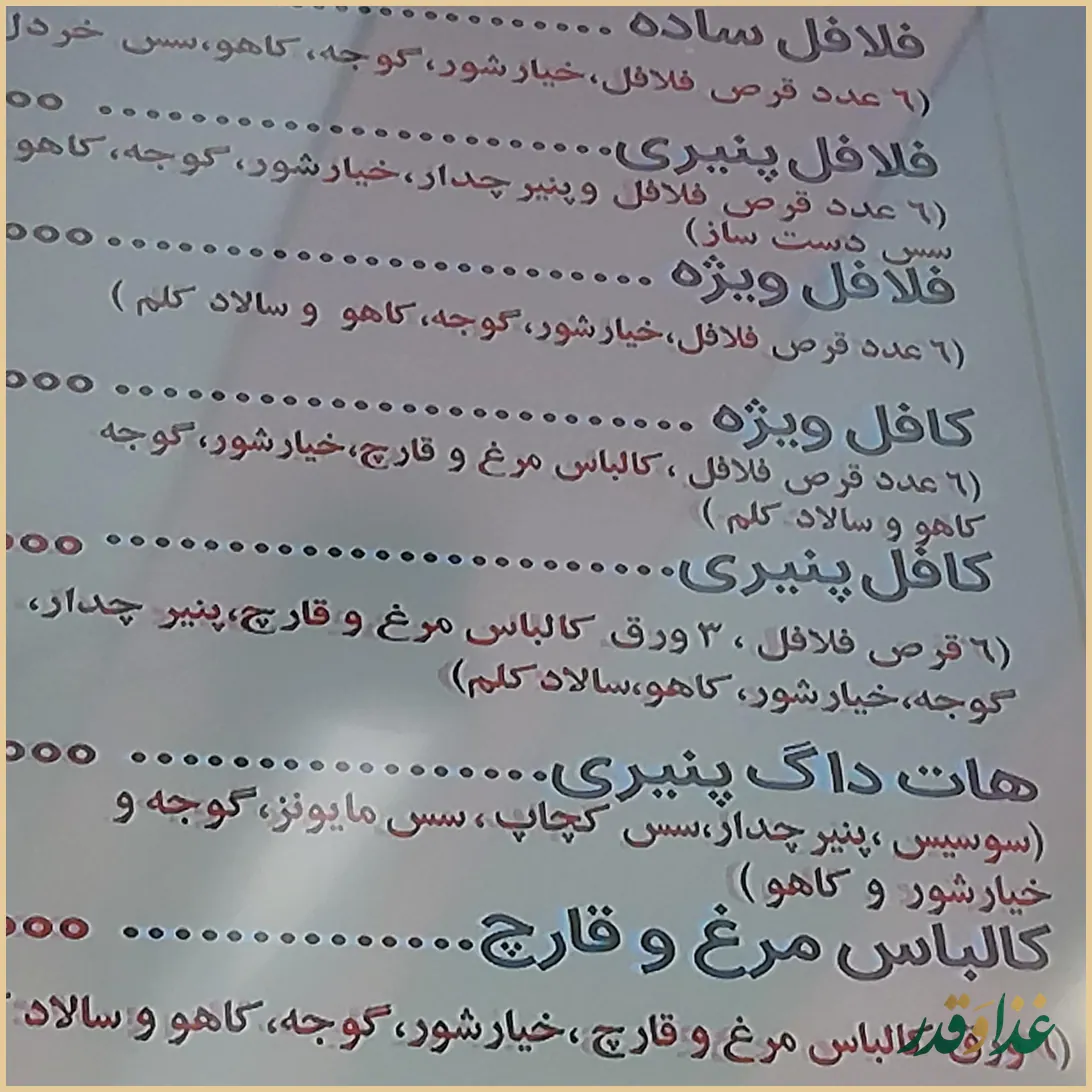 فلافل ساده
(٦ عدد قرص فلافل،خیارشور،گوجه،کاهو،سس خردل
فلافل پنیری
(٦ عدد قرص فلافل وپنیر چدار،خیارشور،گوجه،کاهو
سس دست ساز)
فلافل ویژه
(٦ عدد قرص فلافل،خیارشور،گوجه،کاهو و سالاد کلم )
کافل ویژه
(٦ عدد قرص فلافل ، کالباس مرغ و قارچ،خیارشور،گوجه
کاهو و سالاد کلم )
کافل پنیری
(٦ قرص فلافل ، ۳ ورق کالباس مرغ و قارچ،پنیر چدار،
گوجه،خیارشور،کاهو،سالاد کلم)
هات داگ پنیری
(سوسیس ،پنیر چدار،سس کچاپ ، سس مایونز،گوجه و
خیارشور و کاهو )
کالباس مرغ و قارچ
(٦ ورق کالباس مرغ و قارچ ،خیارشور،گوجه،کاهو و سالاد
غذا و قدر